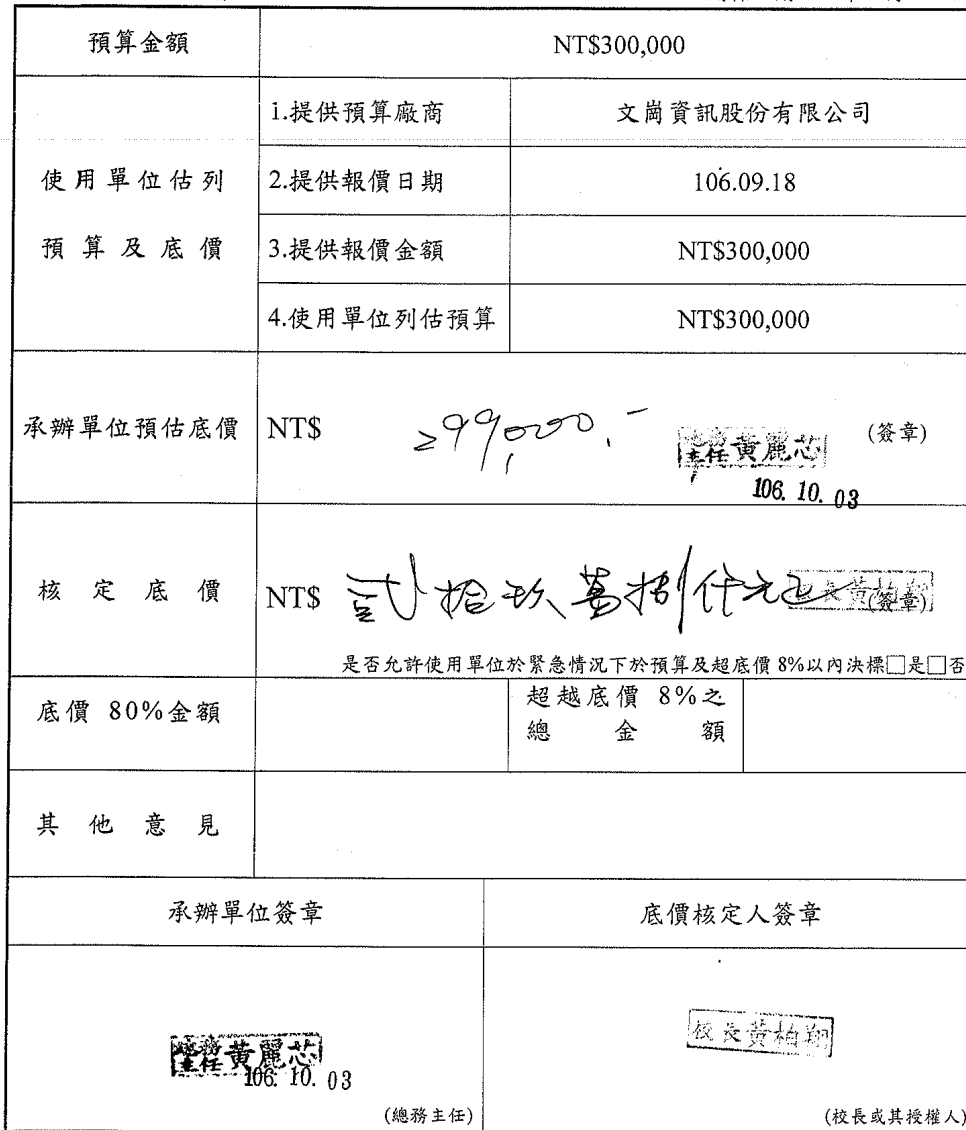 預算金額 NT$300,000
使用單位估列
預算及底價
1.提供預算廠商 文崗資訊股份有限公司
2.提供報價日期 106.09.18
3.提供報價金額 NT$300,000
4.使用單位列估預算 NT$300,000
承辦單位預估底價 NT$ 299,000.- 總務主任黃麗芯 (簽章)
106. 10. 03
核定底價 NT$ 貳拾玖萬捌仟元正 校長黃柏翔 (簽章)
是否允許使用單位於緊急情況下於預算及超底價 8%以內決標□是□否
底價 80%金額 超越底價 8%之
總金額
其他意見
承辦單位簽章 底價核定人簽章
總務主任黃麗芯 校長黃柏翔
106. 10. 03
(總務主任) (校長或其授權人)